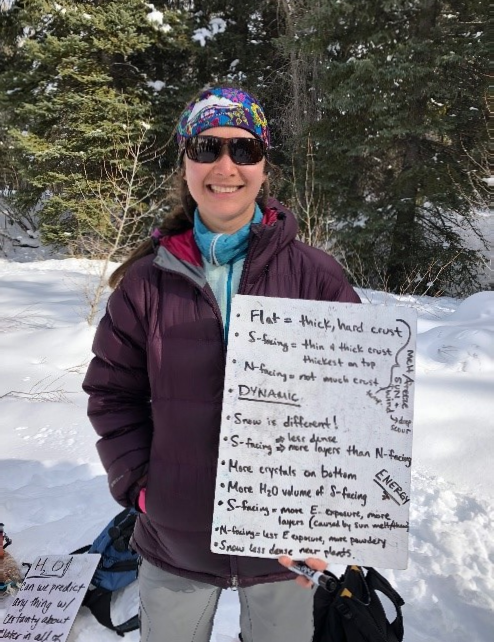 • Flat = thick, hard crust
• S-facing = thin & thick crust
thickest on top
• N-facing = not much crust
• DYNAMIC
Melt
SUN +
wind
→ deep
scour
• Snow is different!
• S-facing ⇒ less dense
⇒ more layers than N-facing
• More crystals on bottom
• More H2O volume of S-facing
ENERGY
• S-facing = more E exposure, more
layers (caused by sun melt
• N-facing = less E exposure, more powdery
• Snow less dense near plants.
H2O
Can we predict
any thing w/
certainty about
water in all of